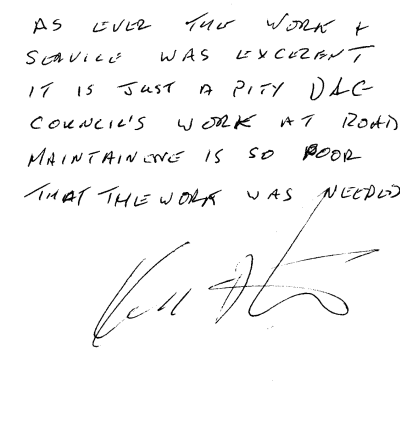 AS EVER THE WORK +
SERVICE WAS EXCELENT
IT IS JUST A PITY D&G
COUNCIL'S WORK AT ROAD
MAINTAINENCE IS SO POOR
THAT THE WORK WAS NEEDED